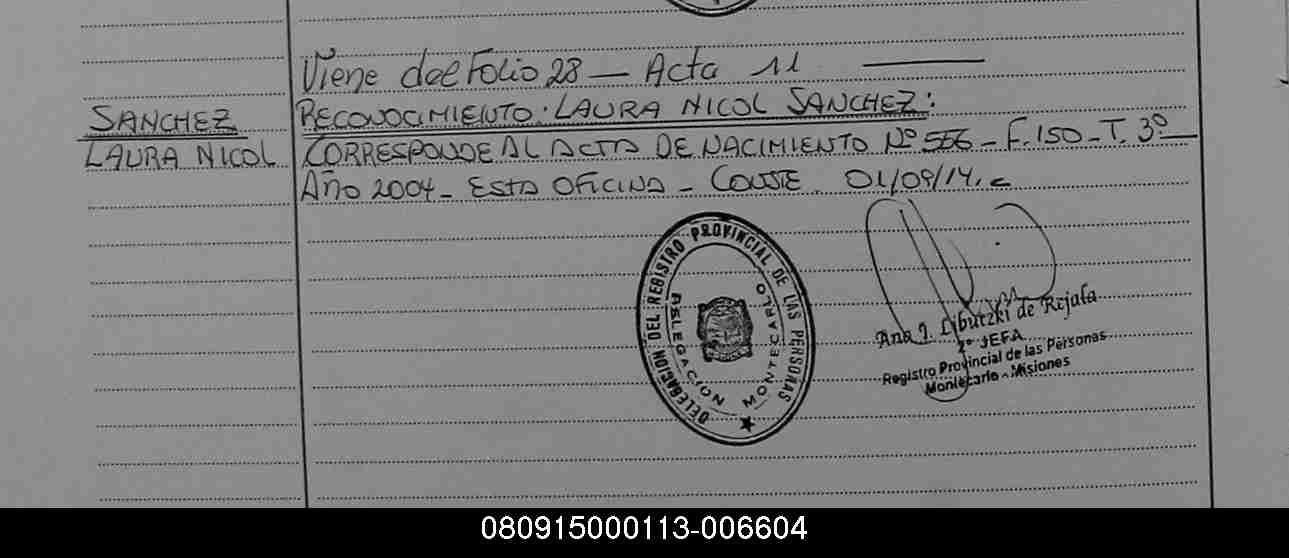 Viene del Folio 28 — Acta 11
SANCHEZ
LAURA NICOL
RECONOCIMIENTO: LAURA NICOL SANCHEZ:
CORRESPONDE AL ACTA DE NACIMIENTO Nº 556 - F. 150 - T. 3º
Año 2004 - ESTA OFICINA - CONSTE. 01/09/14.
DELEGACION DEL REGISTRO PROVINCIAL DE LAS PERSONAS
DELEGACION MONTECARLO
Ana J. Libutzki de Rejala
2º JEFA
Registro Provincial de las Personas
Montecarlo - Misiones
080915000113-006604